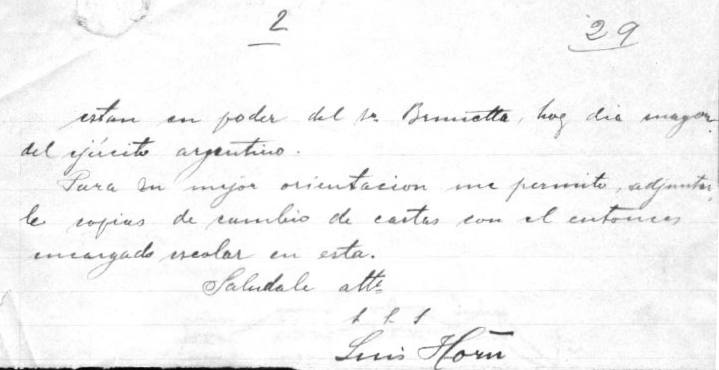 2
29
estan en poder del Sr. Brunetta, hoy dia mayor
del ejército argentino.
Para su mejor orientacion me permito, adjuntar,
le copias de cambio de cartas con el entonces
encargado escolar en esta.
Saludale atte
S S S
Luis Horn